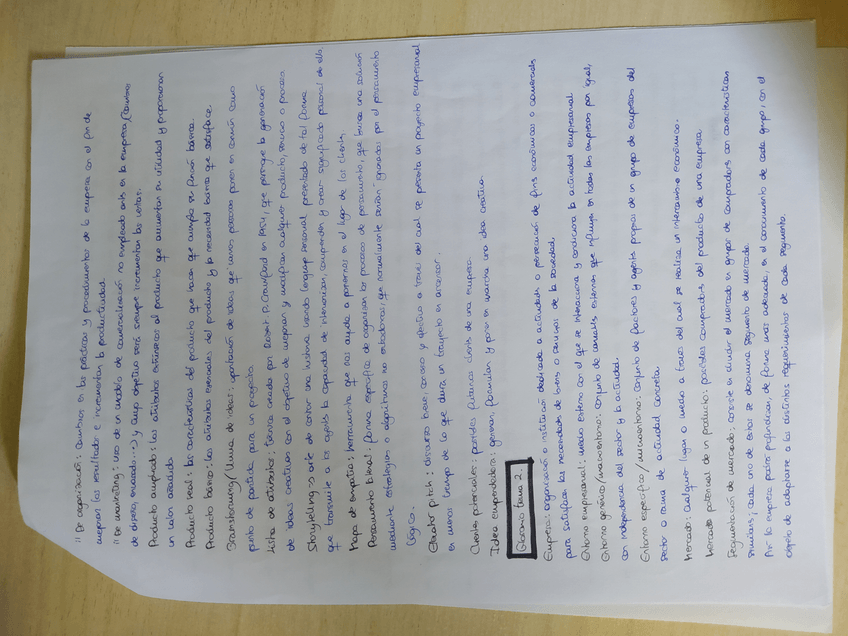 " De organización: cambios en las prácticas y procedimientos de la empresa con el fin de
mejorar los resultados e incrementar la productividad.
" De marketing: uso de un modelo de comercialización no empleado antes en la empresa (cambios
de diseño, envasado...) y cuyo objetivo será siempre incrementar las ventas.
Producto ampliado: los atributos extrínsecos al producto que aumentan su utilidad y proporcionan
un valor añadido.
Producto real: las características del producto que hacen que cumpla su función básica.
Producto básico: los atributos esenciales del producto y la necesidad básica que satisface.
Brainstorming / lluvia de ideas: aportación de ideas que varias personas ponen en común como
punto de partida para un proyecto.
Lista de atributos: técnica creada por Robert P. Crawford en 1954, que persigue la generación
de ideas creativas con el objetivo de mejorar y modificar cualquier producto, servicio o proceso.
Storytelling → arte de contar una historia usando lenguaje personal presentado de tal forma
que transmite a la capacidad de interiorizar, comprender y crear significado personal de ello.
Mapa de empatía: herramienta que nos ayuda a ponernos en el lugar de los clientes.
Pensamiento lateral: forma específica de organizar los procesos de pensamiento, que busca una solución
mediante estrategias o algoritmos no ortodoxos, que normalmente serían ignorados por el pensamiento
lógico.
Elevator pitch: discurso breve, conciso y efectivo a través del cual se presenta un proyecto empresarial
en menos tiempo de lo que dura un trayecto en ascensor.
Clientes potenciales: posibles futuros clientes de una empresa.
Idea emprendedora: generar, formular y poner en marcha una idea creativa.
Glosario tema 2.
Empresa: organización o institución dedicada a actividades o persecución de fines económicos o comerciales
para satisfacer las necesidades de bienes o servicios de la sociedad.
Entorno empresarial: medio externo con el que se interacciona y condiciona la actividad empresarial.
Entorno genérico/macroentorno: conjunto de variables externas que influyen en todas las empresas por igual,
con independencia del sector y la actividad.
Entorno específico/microentorno: conjunto de factores y agentes propios de un grupo de empresas del
sector o rama de actividad concreta.
Mercado: cualquier lugar o medio a través del cual se realiza un intercambio económico.
Mercado potencial de un producto: posibles compradores del producto de una empresa.
Segmentación de mercado: consiste en dividir el mercado en grupos de compradores con características
similares; cada uno de estos se denomina segmento de mercado.
Así la empresa podrá profundizar, de forma más adecuada, en el conocimiento de cada grupo, con el
objeto de adaptarse a los distintos requerimientos de cada segmento.